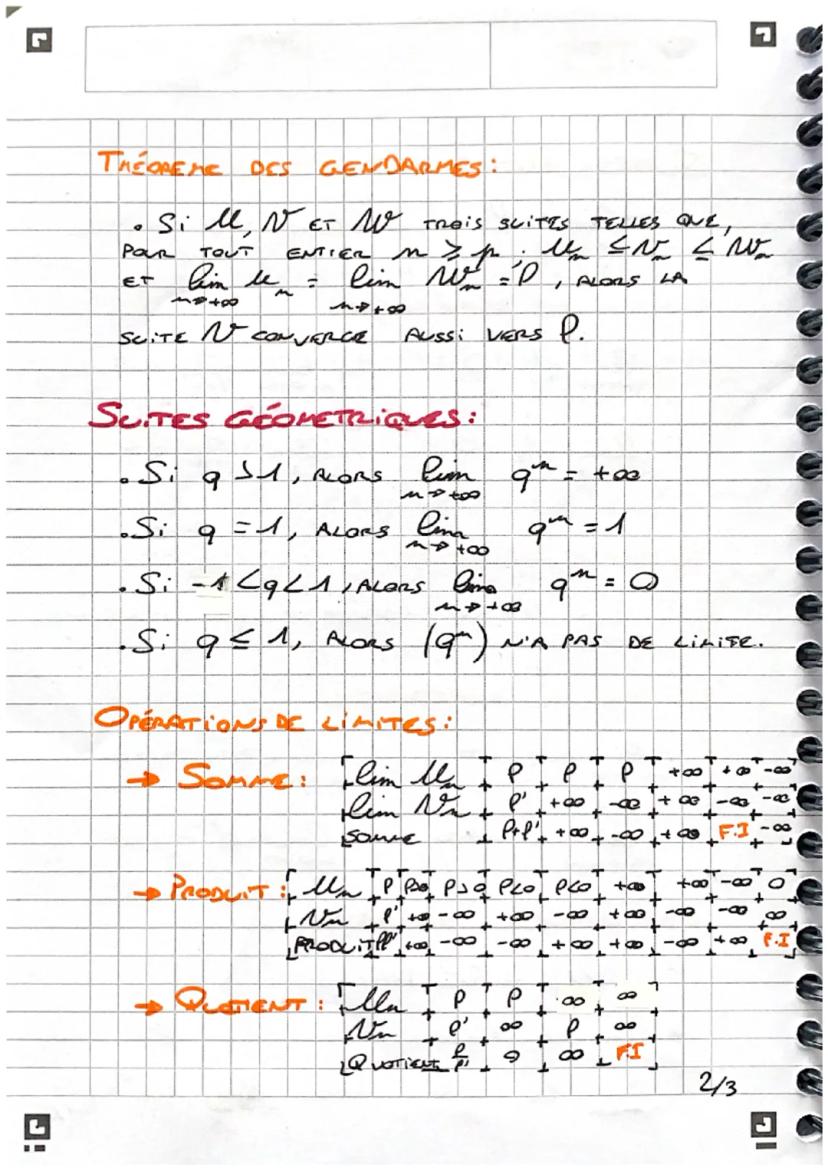 THÉORÈME DES GENDARMES :
• Si U, V ET W TROIS SUITES TELLES QUE,
POUR TOUT ENTIER n ≥ p : Un ≤ Vn ≤ Wn
ET lim Un = lim Wn = l, ALORS LA
n→+∞ n→+∞
SUITE V CONVERGE AUSSI VERS l.
SUITES GÉOMETRIQUES :
• Si q > 1, ALORS lim qⁿ = +∞
n→+∞
• Si q = 1, ALORS lim qⁿ = 1
n→+∞
• Si -1 < q < 1, ALORS lim qⁿ = 0
n→+∞
• Si q ≤ 1, ALORS (qⁿ) N'A PAS DE LIMITE.
OPÉRATIONS DE LIMITES :
→ SOMME : lim Un l l l +∞ +∞ -∞
lim Vn l' +∞ -∞ +∞ -∞ -∞
SOMME l+l' +∞ -∞ +∞ F.I -∞
→ PRODUIT : Un l l>0 l>0 l<0 l<0 +∞ +∞ -∞ 0
Vn l' +∞ -∞ +∞ -∞ +∞ -∞ -∞ ∞
PRODUIT ll' +∞ -∞ -∞ +∞ +∞ -∞ +∞ F.I
→ QUOTIENT : Un l l ∞ ∞
Vn l' ∞ l ∞
QUOTIENT l/l' 0 ∞ F.I
2/3